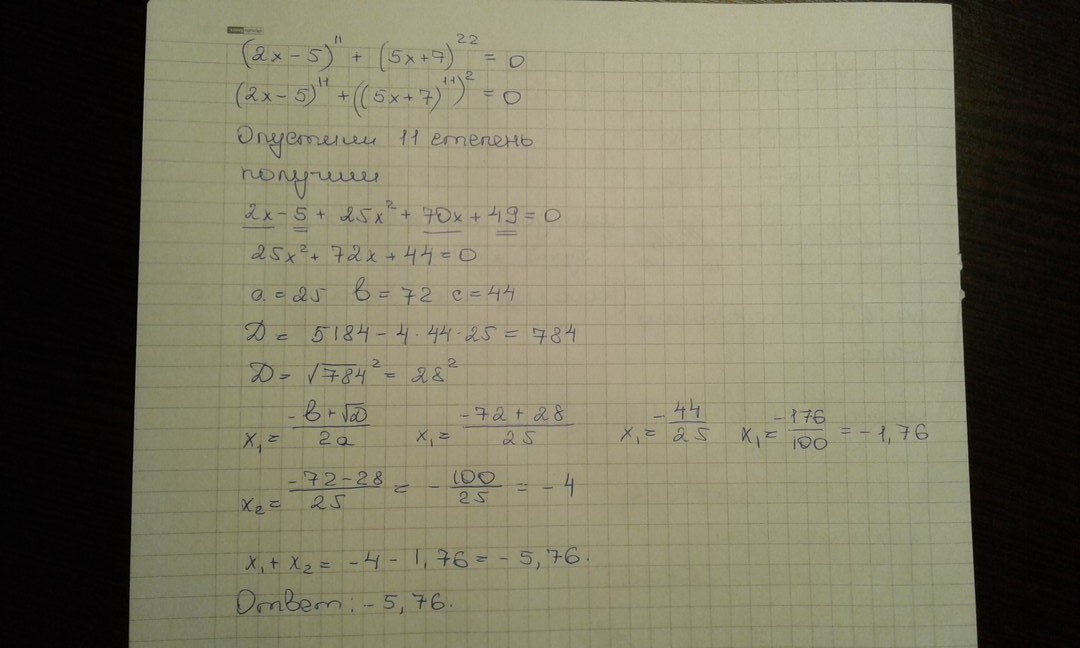 (2x-5)^11 + (5x+7)^22 = 0
(2x-5)^11 + ((5x+7)^11)^2 = 0
Опустили 11 степень
получили
2x-5 + 25x^2 + 70x + 49 = 0
25x^2 + 72x + 44 = 0
a = 25 b = 72 c = 44
D = 5184 - 4·44·25 = 784
D = √784^2 = 28^2
x₁ = -b+√D/2a x₁ = -72+28/25 x₁ = -44/25 x₁ = -176/100 = -1,76
x₂ = -72-28/25 = -100/25 = -4
x₁ + x₂ = -4 - 1,76 = -5,76.
Ответ: -5,76.